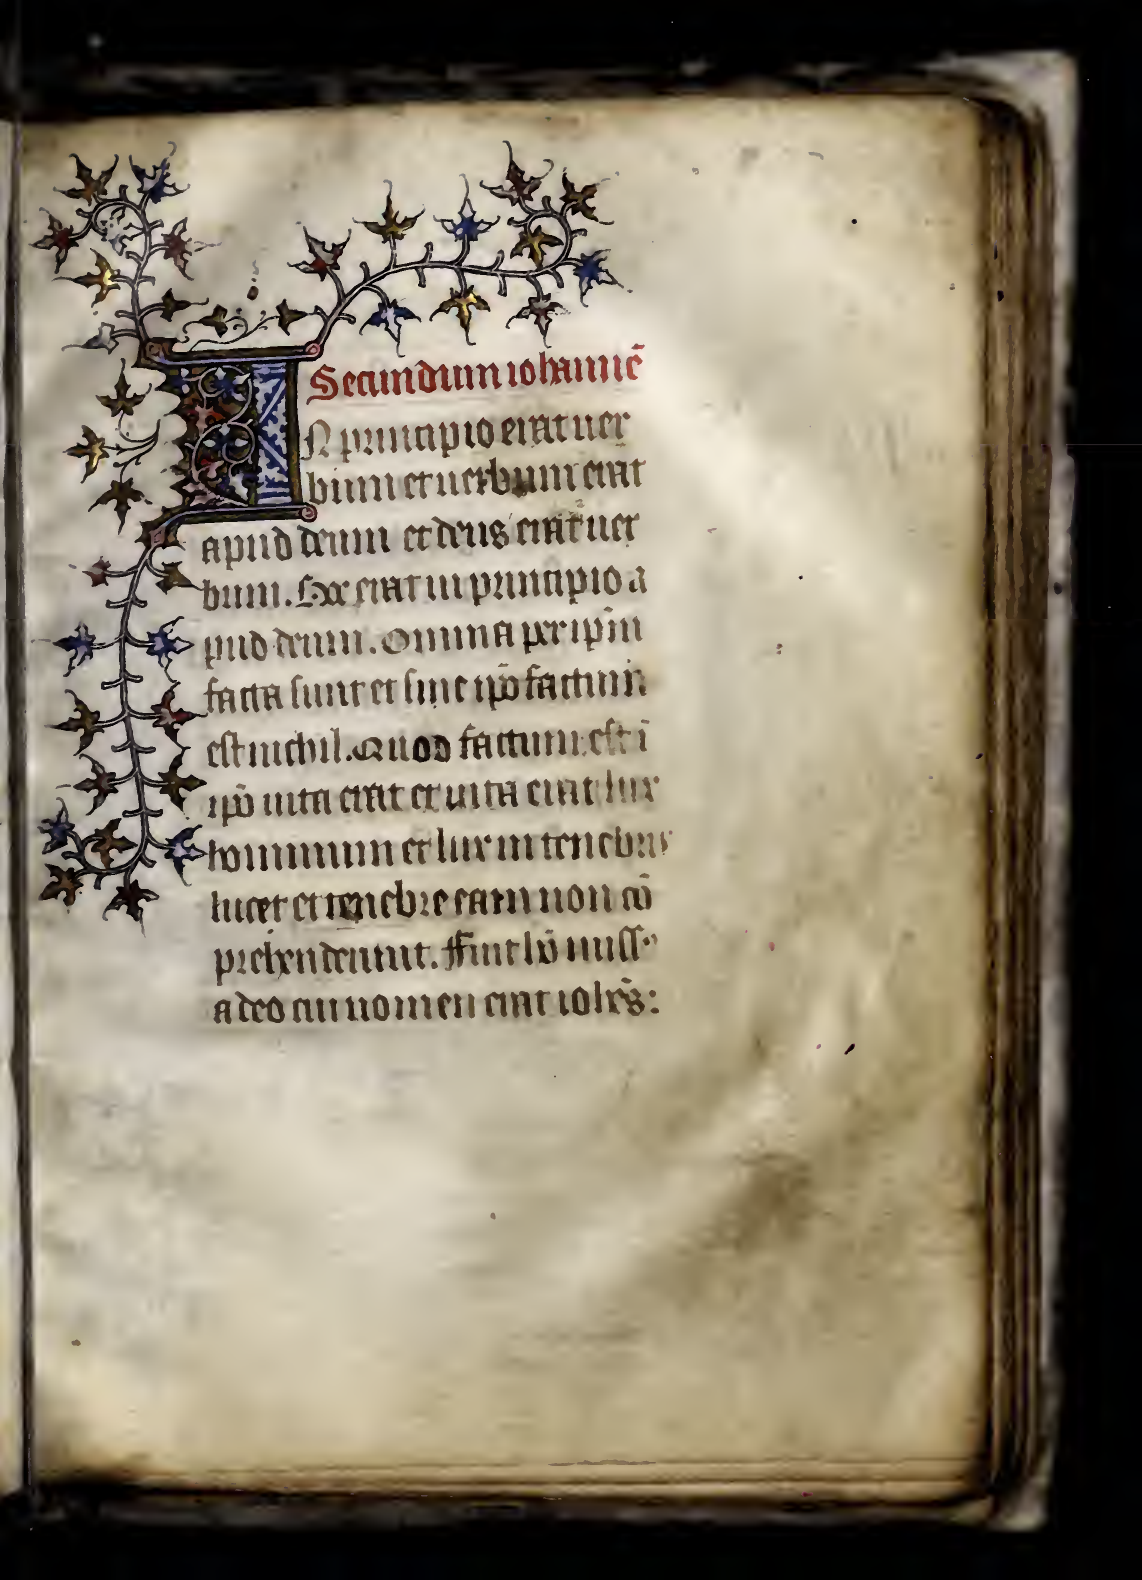 Secundum iohannē
IN principio erat uer
bum et uerbum erat
apud deum et deus erat uer
bum. Hoc erat in principio a
pud deum. Omnia per ip̄m
facta sunt et sine ip̄o factum
est nichil. Quod factum est ī
ip̄o uita erat et uita erat lux
hominum et lux in tenebris
lucet et tenebre eam non cō
prehenderunt. Fuit hō miss⁹
a deo cui nomen erat ioh̄es: